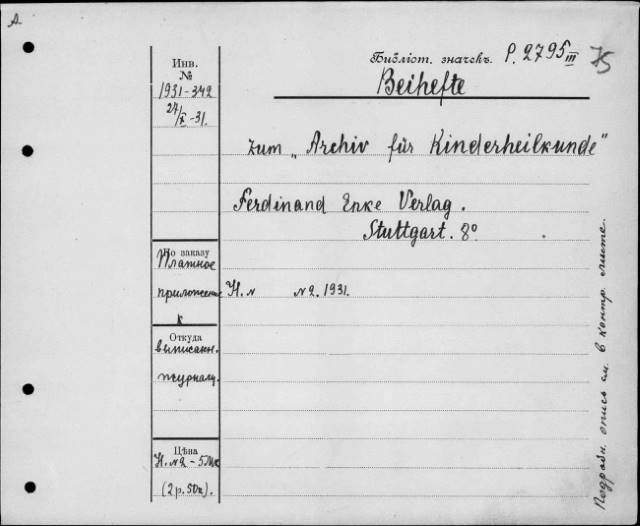 A.
Библіот. значекъ. P. 2795 III 75
Инв. №
1931-342
27/X-31.
Beihefte
zum „Archiv für Kinderheilkunde"
Ferdinand Enke Verlag.
Stuttgart. 8°
По заказу
Платное
приложение
к
H. N № 2. 1931.
Откуда
выписанн.
журналу.
Цѣна
H. № 2 - 5 Mk
(2 р. 50к).
Подробн. опись см. в контр. листе.